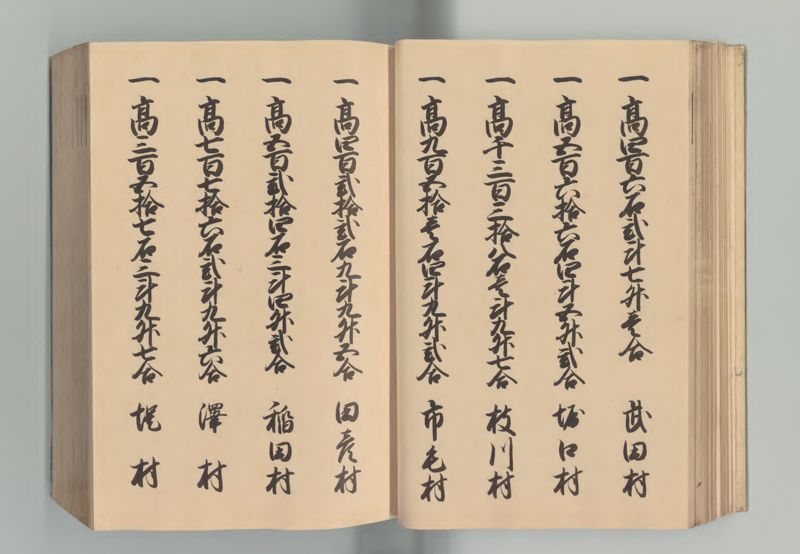 一 高四百六石弐斗七升壱合 武田村
一 高五百六拾六石四斗五升弐合 堀口村
一 高千三百三拾八石壱斗九升七合 枝川村
一 高九百五拾壱石四斗九升弐合 市毛村
一 高四百弐拾弐石九斗九升五合 田彦村
一 高五百弐拾四石三斗四升弐合 稲田村
一 高七百七拾六石弐斗九升六合 澤村
一 高三百五拾七石三斗九升七合 堤村